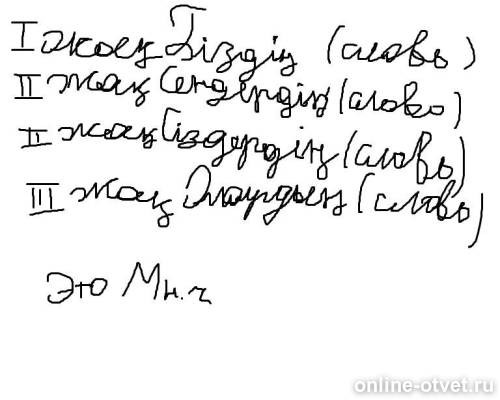 I жақ Біздің (слово)
II жақ Сендердің (слово)
II жақ Сіздердің (слово)
III жақ Олардың (слово)
Это Мн.ч
online-otvet.ru